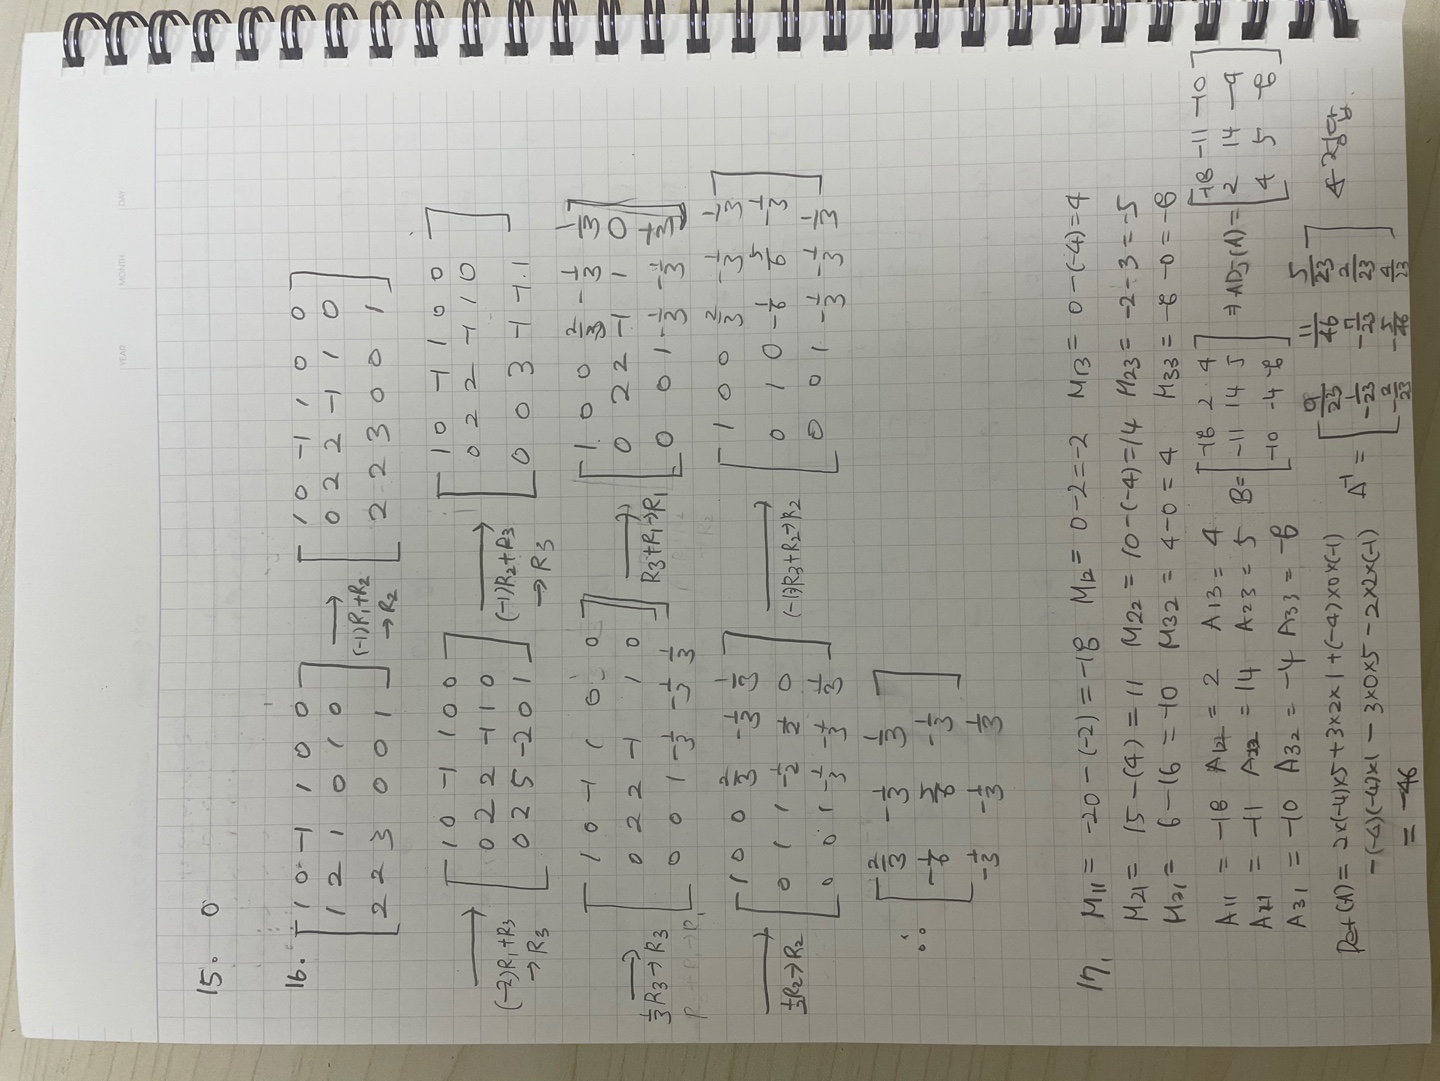 YEAR MONTH DAY
15. 0
16. [1 0 -1 1 0 0
1 2 1 0 1 0
2 2 3 0 0 1]
→ (-1)R1+R2 → R2
[1 0 -1 1 0 0
0 2 2 -1 1 0
2 2 3 0 0 1]
→ (-2)R1+R3 → R3
[1 0 -1 1 0 0
0 2 2 -1 1 0
0 2 5 -2 0 1]
→ (-1)R2+R3 → R3
[1 0 -1 1 0 0
0 2 2 -1 1 0
0 0 3 -1 -1 1]
→ 1/3R3→R3
[1 0 -1 1 0 0
0 2 2 -1 1 0
0 0 1 -1/3 -1/3 1/3]
→ R3+R1→R1
[1 0 0 2/3 -1/3 1/3
0 2 2 -1 1 0
0 0 1 -1/3 -1/3 1/3]
→ 1/2R2→R2
[1 0 0 2/3 -1/3 1/3
0 1 1 -1/2 1/2 0
0 0 1 -1/3 -1/3 1/3]
→ (-1)R3+R2→R2
[1 0 0 2/3 -1/3 1/3
0 1 0 -1/6 5/6 -1/3
0 0 1 -1/3 -1/3 1/3]
∴ [2/3 -1/3 1/3
-1/6 5/6 -1/3
-1/3 -1/3 1/3]
17. M11 = -20-(-2) = -18 M12 = 0-2=-2 M13 = 0-(-4)=4
M21 = 15-(4) = 11 M22 = 10-(-4)=14 M23 = -2-3=-5
M31 = 6-16 = -10 M32 = 4-0 = 4 M33 = -8-0=-8
A11 = -18 A12 = 2 A13 = 4
A21 = -11 A22 = 14 A23 = 5
A31 = -10 A32 = -4 A33 = -8
B= [-18 2 4
-11 14 5
-10 -4 -8] ⇒ ADj(A)= [-18 -11 -10
2 14 -4
4 5 -8]
Det(A) = 2x(-4)x5+3x2x1+(-4)x0x(-1)
-(-4)(-4)x1-3x0x5-2x2x(-1)
= -46
A⁻¹ = [9/23 11/46 5/23
-1/23 -7/23 2/23
-2/23 -5/46 4/23]